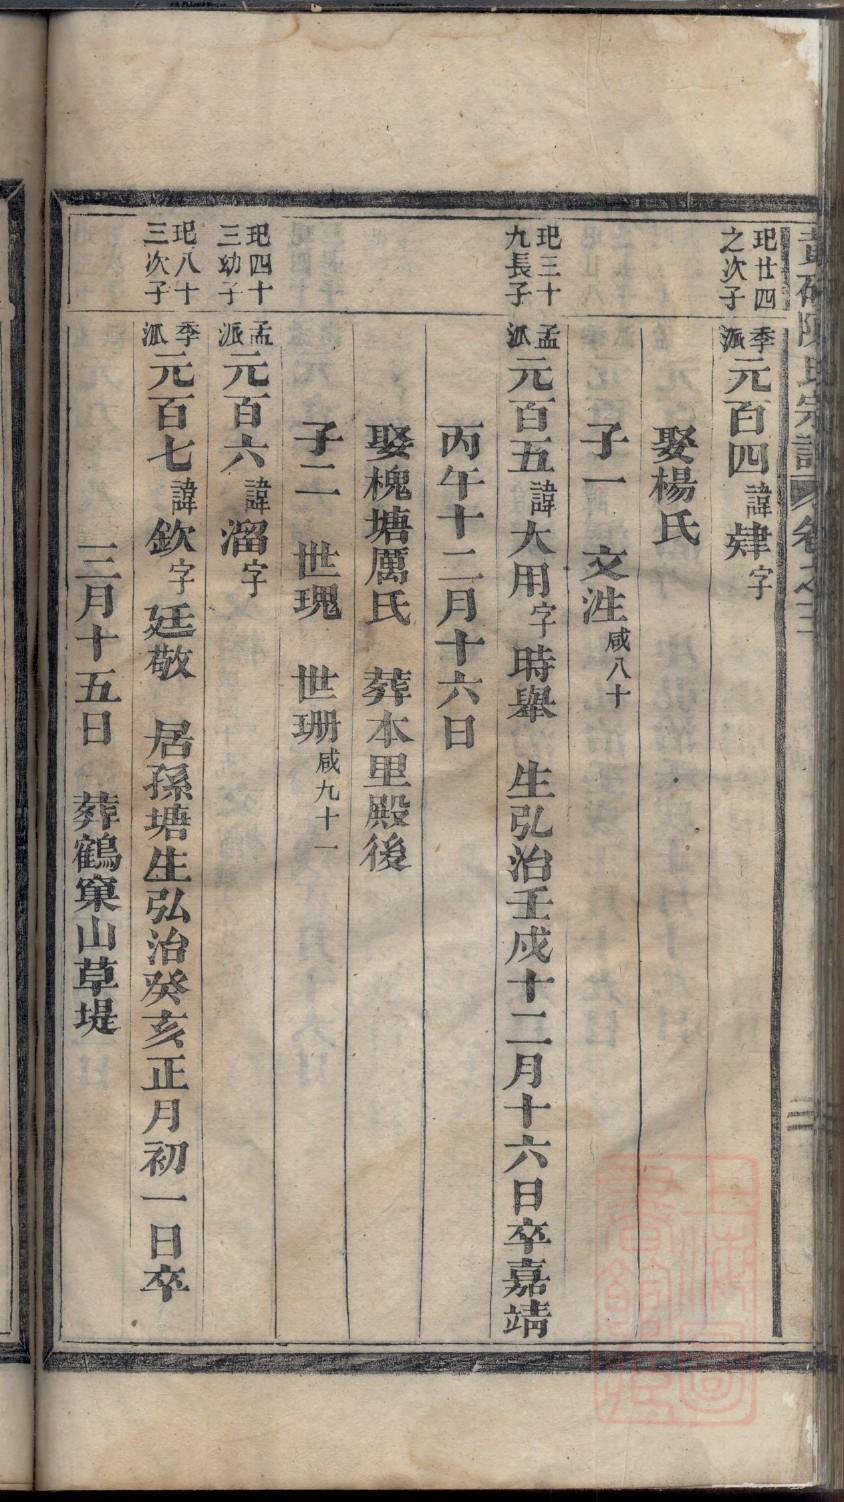 陳氏宗譜 卷之三
玘廿四之次子
季派元百四諱肄字
娶楊氏
子一 文泩咸八十
玘三十九長子
孟派元百五諱大用字時舉 生弘治壬戌十二月十六日卒嘉靖
丙午十二月十六日
娶槐塘厲氏 葬本里殿後
子二 世瑰 世珊咸九十一
玘四十三幼子
孟派元百六諱溜字
玘八十三次子
季派元百七諱欽字廷敬 居孫塘生弘治癸亥正月初一日卒
三月十五日 葬鶴窠山草堤
上海圖書館藏